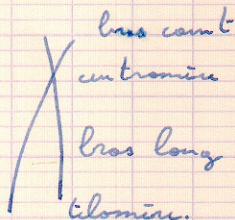 bras court
centromère
bras long
télomère.